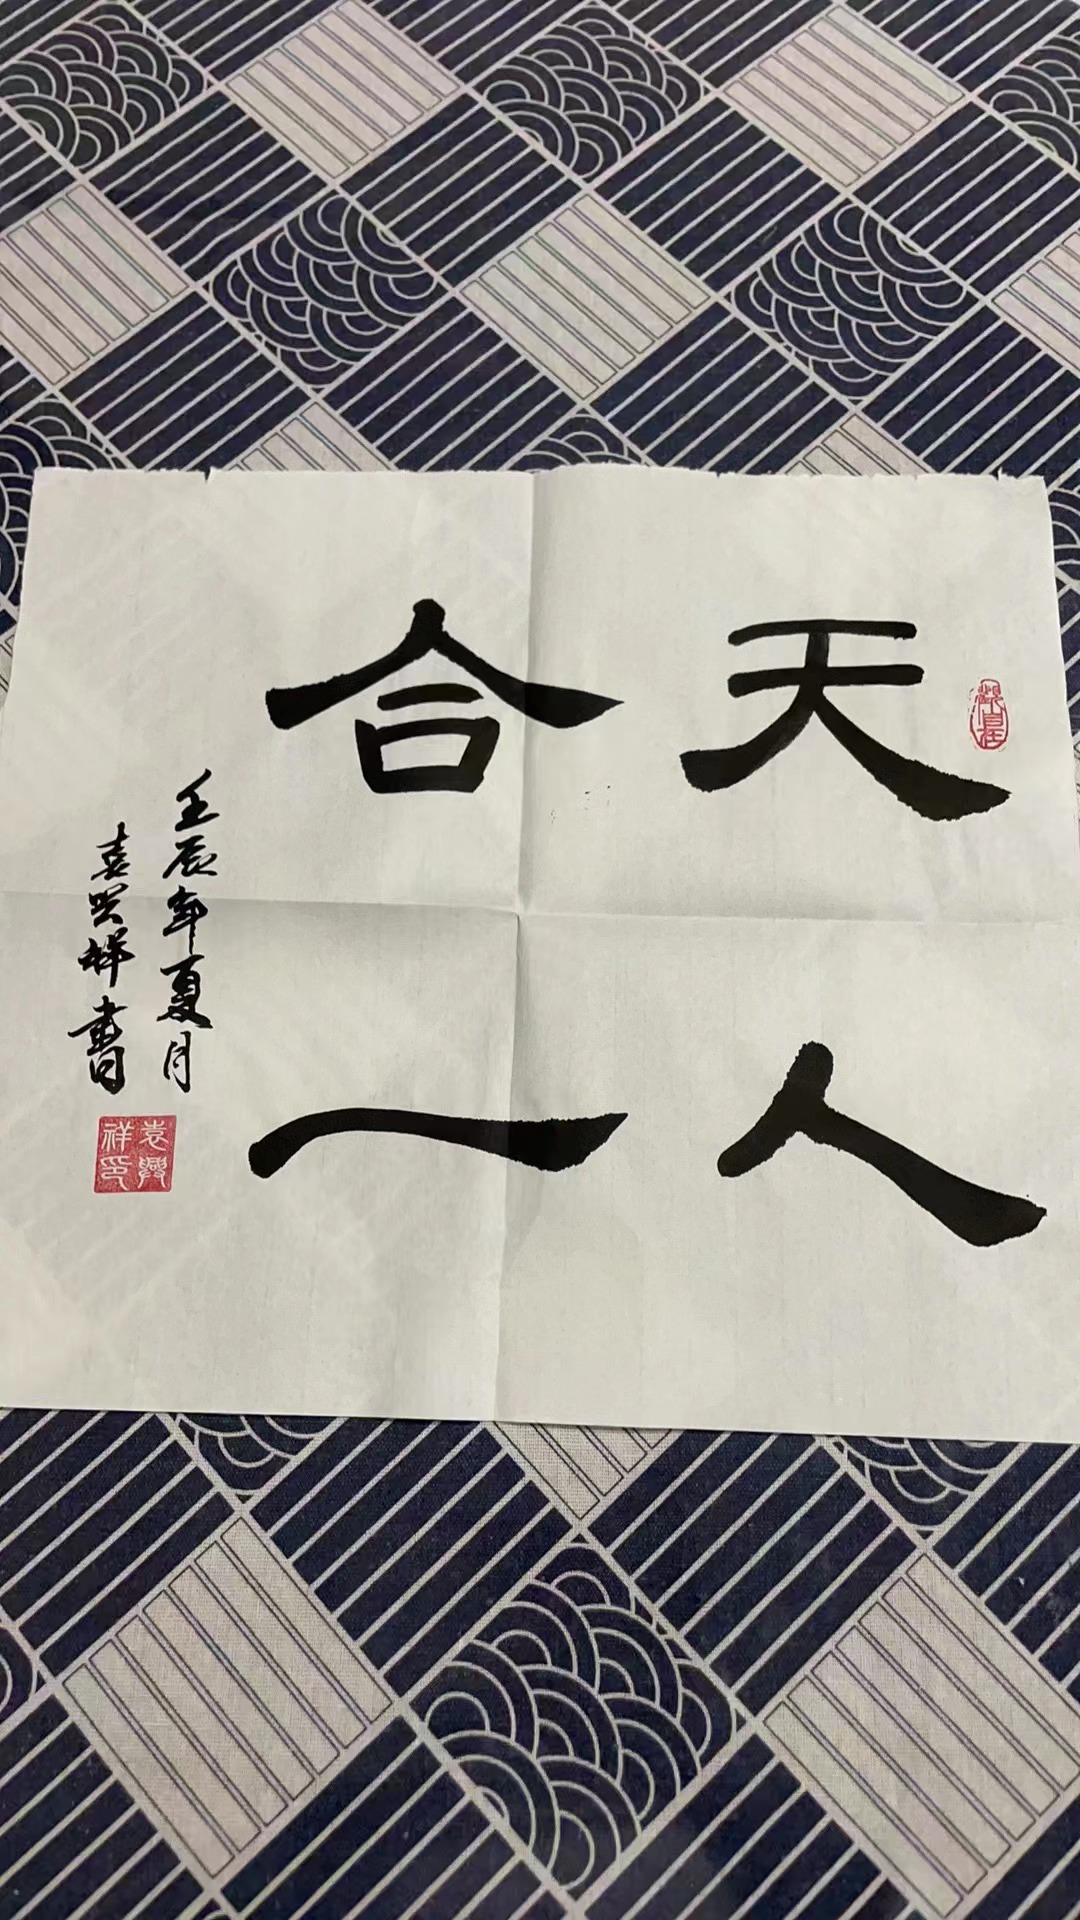 天人
合一
壬辰年夏月
袁兴祥书
袁興
祥印